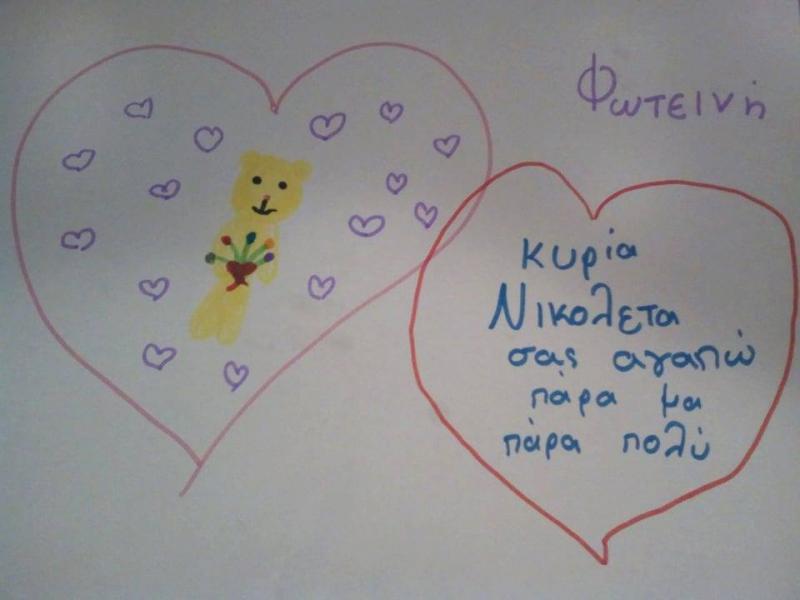 Φωτεινή
κυρία
Νικολετα
σας αγαπώ
πάρα μα
πάρα πολύ